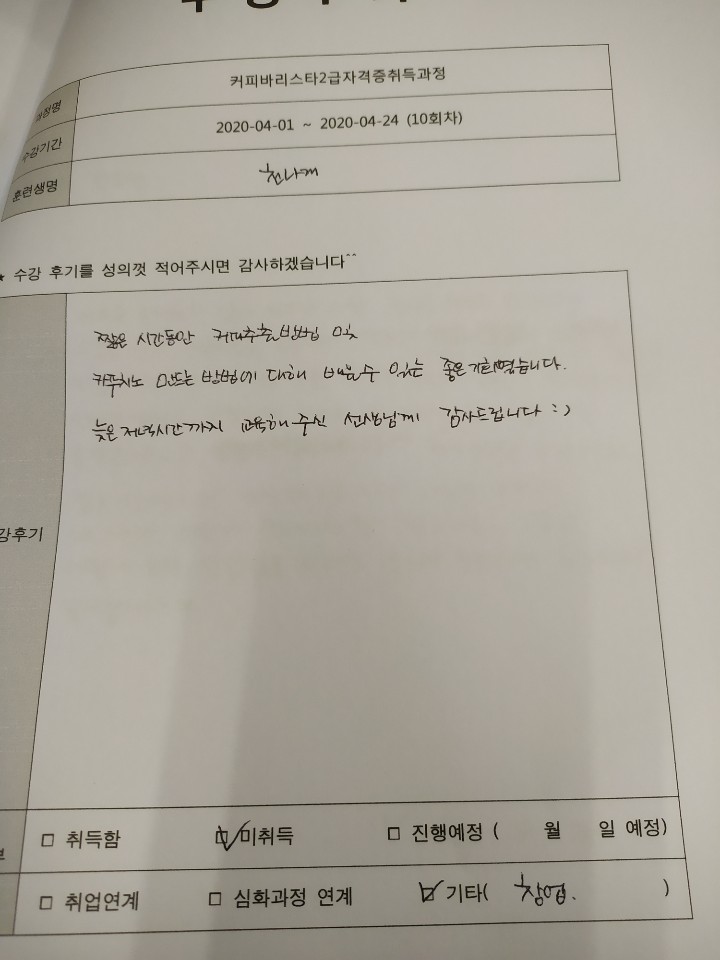 수강후기
과정명 커피바리스타2급자격증취득과정
수강기간 2020-04-01 ~ 2020-04-24 (10회차)
훈련생명
★ 수강 후기를 성의껏 적어주시면 감사하겠습니다^^
짧은 시간동안 커피추출방법 및
카푸치노 만드는 방법에 대해 배울수 있는 좋은기회였습니다.
늦은 저녁시간까지 교육해주신 선생님께 감사드립니다 :)
강후기
□ 취득함 ☑ 미취득 □ 진행예정 ( 월 일 예정)
□ 취업연계 □ 심화과정 연계 ☑ 기타( 창업. )